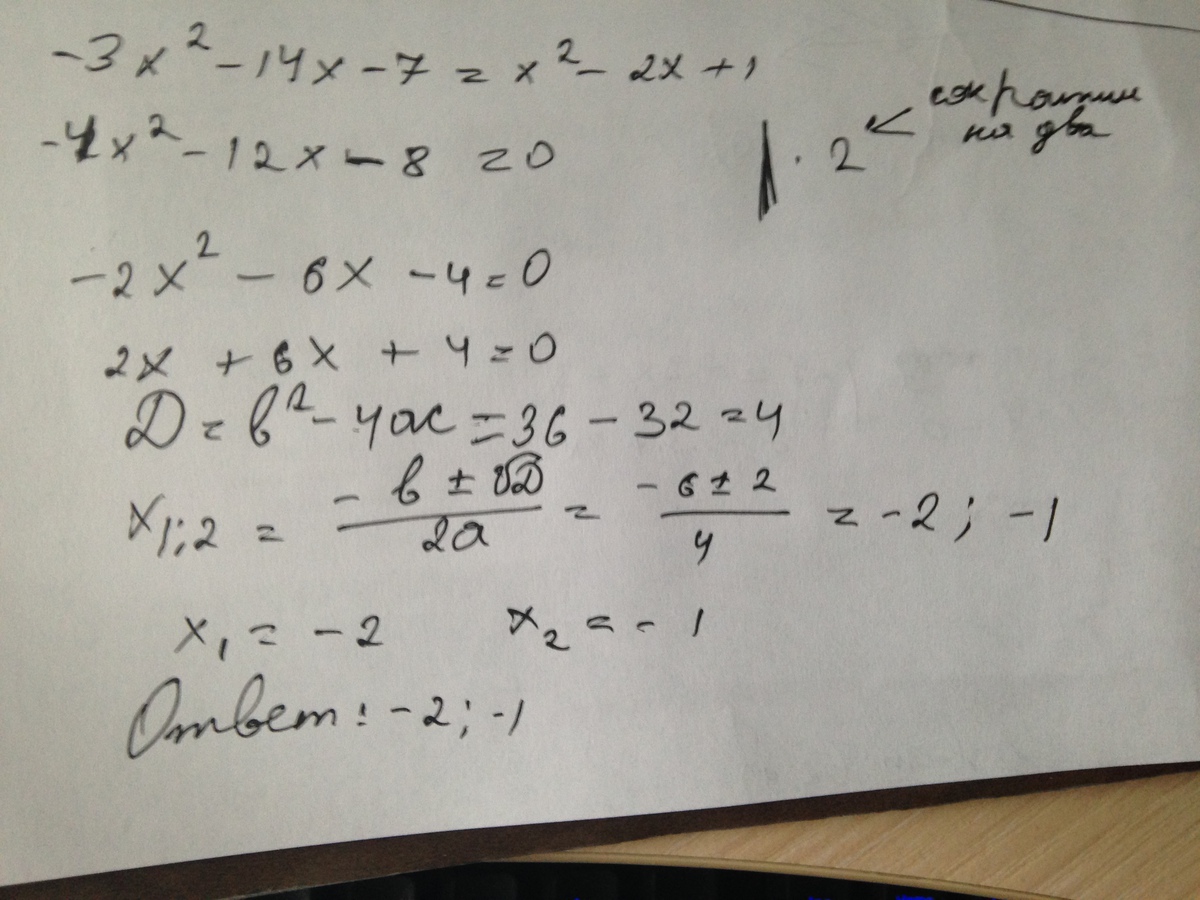 -3x² - 14x - 7 = x² - 2x + 1
-4x² - 12x - 8 = 0 | · 2 ← сократим на два
-2x² - 6x - 4 = 0
2x + 6x + 4 = 0
D = b² - 4ac = 36 - 32 = 4
x1;2 = (-b ± √D)/(2a) = (-6 ± 2)/4 = -2; -1
x₁ = -2 x₂ = -1
Ответ: -2; -1